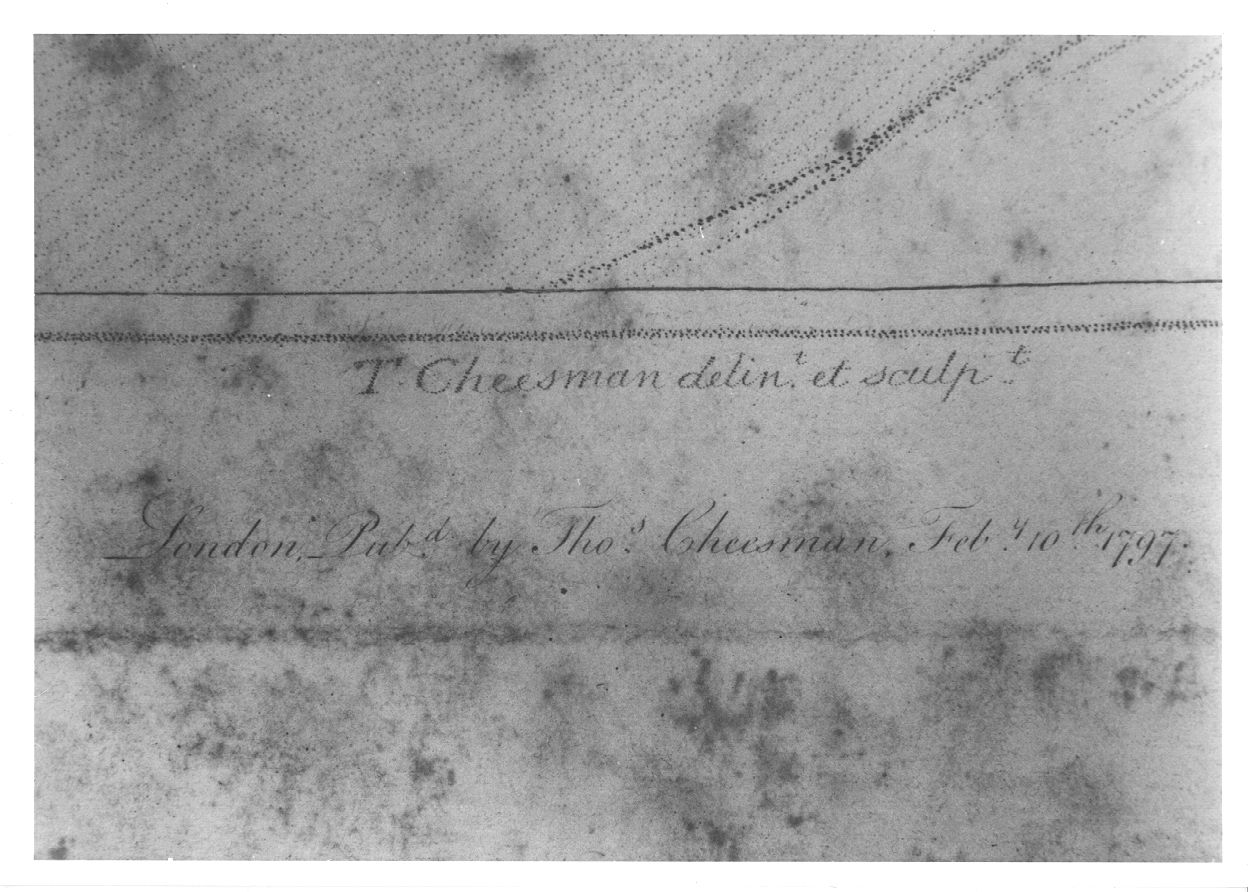 T. Cheesman delin.t et sculp.t
London, Pub.d by Tho.s Cheesman, Feb.y 10.th 1797.